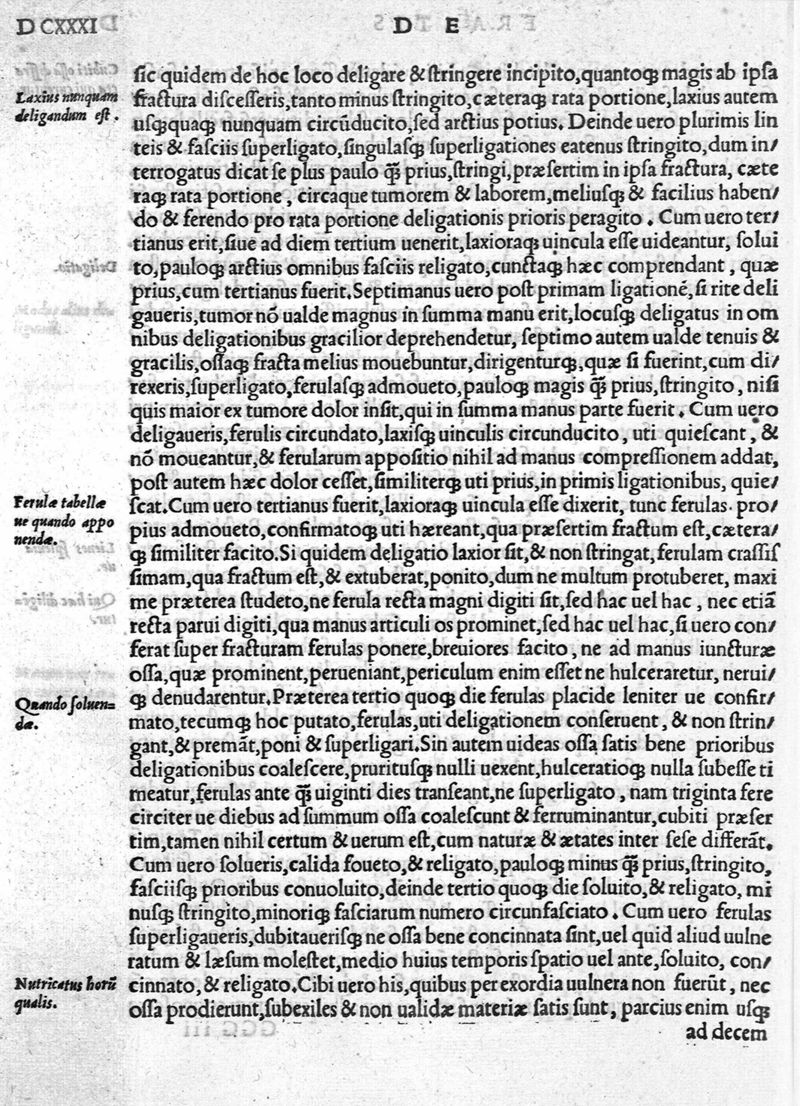 DCXXXI
D E
sic quidem de hoc loco deligare & stringere incipito,quantoqꝫ magis ab ipsa
Laxius nunquam
fractura discesseris,tanto minus stringito,cæteraqꝫ rata portione,laxius autem
deligandum est.
usqꝫquaqꝫ nunquam circūducito,sed arctius potius. Deinde uero plurimis lin
teis & fasciis superligato,singulasqꝫ superligationes eatenus stringito,dum in/
terrogatus dicat se plus paulo qꝫ̃ prius,stringi,præsertim in ipsa fractura, cæte
raqꝫ rata portione, circaque tumorem & laborem,meliusqꝫ & facilius haben/
do & ferendo pro rata portione deligationis prioris peragito. Cum uero ter/
tianus erit,siue ad diem tertium uenerit,laxioraqꝫ uincula esse uideantur, solui
to,pauloqꝫ arctius omnibus fasciis religato,cunctaqꝫ hæc comprendant, quæ
prius,cum tertianus fuerit.Septimanus uero post primam ligationē,si rite deli
gaueris,tumor nō ualde magnus in summa manu erit,locusqꝫ deligatus in om
nibus deligationibus gracilior deprehendetur, septimo autem ualde tenuis &
gracilis,ossaqꝫ fracta melius mouebuntur,dirigenturqꝫ,quæ si fuerint,cum di/
rexeris,superligato,ferulasqꝫ admoueto,pauloqꝫ magis qꝫ̃ prius,stringito, nisi
quis maior ex tumore dolor insit,qui in summa manus parte fuerit. Cum uero
deligaueris,ferulis circundato,laxisqꝫ uinculis circunducito, uti quiescant, &
nō moueantur,& ferularum appositio nihil ad manus compressionem addat,
post autem hæc dolor cesset,similiterqꝫ uti prius,in primis ligationibus, quie/
Ferulæ tabellæ
scat.Cum uero tertianus fuerit,laxioraqꝫ uincula esse dixerit, tunc ferulas. pro/
ue quando appo
pius admoueto,confirmatoqꝫ uti hæreant,qua præsertim fractum est,cætera/
nendæ.
qꝫ similiter facito.Si quidem deligatio laxior sit,& non stringat,ferulam crassis
simam,qua fractum est,& extuberat,ponito,dum ne multum protuberet, maxi
me præterea studeto,ne ferula recta magni digiti sit,sed hac uel hac, nec etiā
recta parui digiti,qua manus articuli os prominet,sed hac uel hac,si uero con/
ferat super fracturam ferulas ponere,breuiores facito, ne ad manus iuncturæ
ossa,quæ prominent,perueniant,periculum enim esset ne hulceraretur, nerui/
Quando soluen=
qꝫ denudarentur.Præterea tertio quoqꝫ die ferulas placide leniter ue confir/
dæ.
mato,tecumqꝫ hoc putato,ferulas,uti deligationem conseruent, & non strin/
gant,& premāt,poni & superligari.Sin autem uideas ossa satis bene prioribus
deligationibus coalescere,pruritusqꝫ nulli uexent,hulceratioqꝫ nulla subesse ti
meatur,ferulas ante qꝫ̃ uiginti dies transeant,ne superligato, nam triginta fere
circiter ue diebus ad summum ossa coalescunt & ferruminantur,cubiti præser
tim,tamen nihil certum & uerum est,cum naturæ & ætates inter sese differāt.
Cum uero solueris,calida foueto,& religato,pauloqꝫ minus qꝫ̃ prius,stringito,
fasciisqꝫ prioribus conuoluito,deinde tertio quoqꝫ die soluito,& religato, mi
nusqꝫ stringito,minoriqꝫ fasciarum numero circunfasciato. Cum uero ferulas
superligaueris,dubitauerisqꝫ ne ossa bene concinnata sint,uel quid aliud uulne
ratum & læsum molestet,medio huius temporis spatio uel ante,soluito, con/
Nutricatus horū
cinnato,& religato.Cibi uero his,quibus per exordia uulnera non fuerūt, nec
qualis.
ossa prodierunt,subexiles & non ualidæ materiæ satis sunt, parcius enim usqꝫ
ad decem